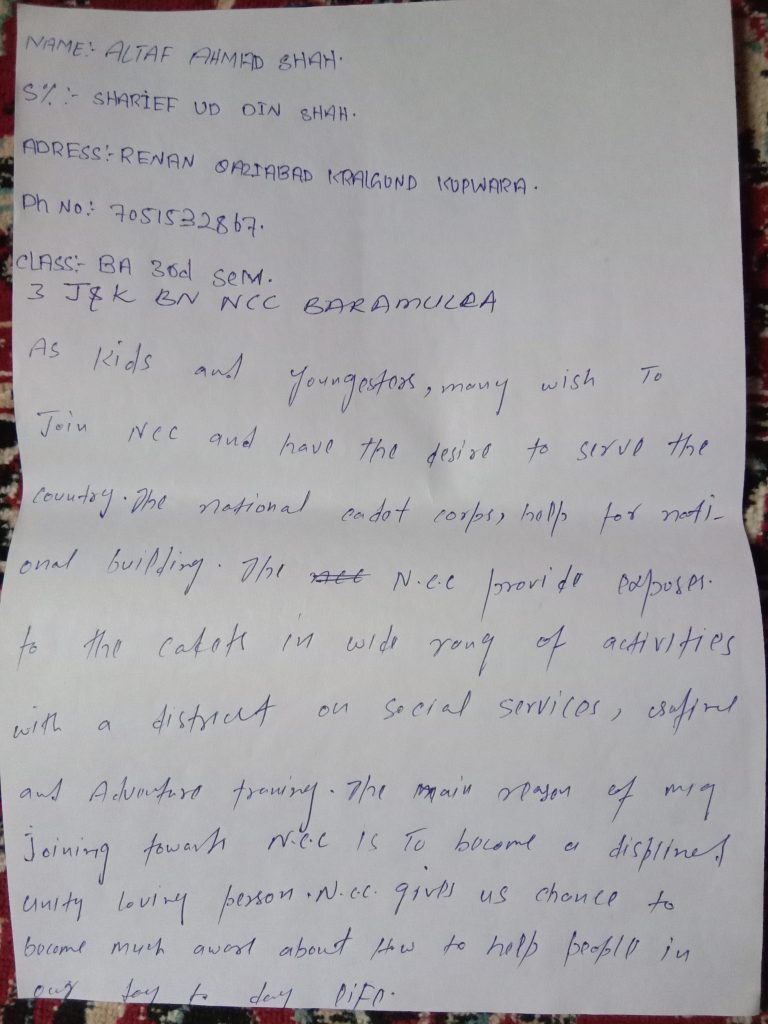 NAME:- ALTAF AHMAD SHAH.
S/o :- SHARIEF UD DIN SHAH.
ADRESS:- RENAN QAZIABAD KRALGUND KUPWARA.
Ph No:- 7051532867.
CLASS:- BA 3rd SEM.
3 J&K BN NCC BARAMULLA
As kids and youngestors, many wish To
Join NCC and have the desire to serve the
country. The national cadet corps, help for nati-
onal building. The N.C.C provide exposes.
to the cadets in wide rang of activities
with a district on social services,
and Adventure traning. The main reason of my
joining towards N.C.C is To become a displined
unity loving person. N.cc. gives us chance to
become much aware about How to help people in
our day to day life.